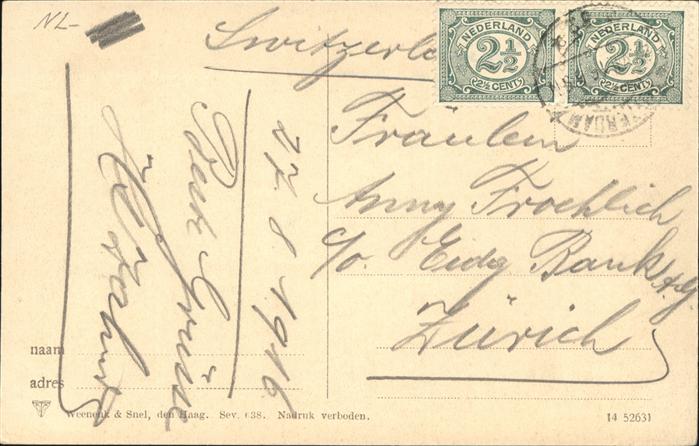 NL-
Switzerl
NEDERLAND
2½
2½ CENT
NEDERLAND
2½
2½ CENT
ERDAM
Fräulein
Anny Froehlich
c/o. Eidg Bank A.G.
Zürich
27.8.1916
Beste Grüsse
naam
adres
Weenenk & Snel, den Haag. Sev. 638. Nadruk verboden.
14 52631